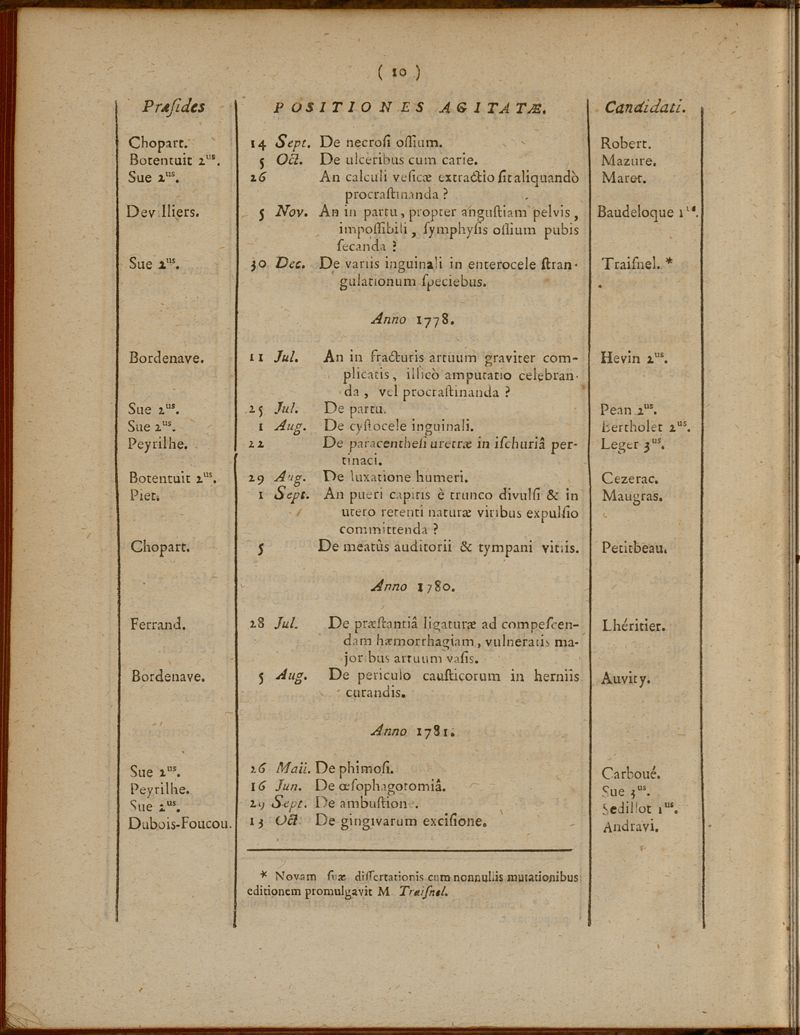 ( 10 )
Præſides POSITIONES AGITATÆ. Candidati.
Chopart. 14 Sept. De necroſi oſſium. Robert.
Botentuit 2us. 5 Oct. De ulceribus cum carie. Mazure.
Sue 2us. 26 An calculi veſicæ extractio ſit aliquandò Maret.
procraſtinanda ?
Devilliers. 5 Nov. An in partu, propter anguſtiam pelvis, Baudeloque 1us.
impoſſibili, ſymphyſis oſſium pubis
ſecanda ?
Sue 2us. 30 Dec. De variis inguinali in enterocele ſtran- Traiſnel. *
gulationum ſpeciebus.
Anno 1778.
Bordenave. 11 Jul. An in fracturis artuum graviter com- Hevin 2us.
plicatis, illicò amputatio celebran-
da, vel procraſtinanda ?
Sue 2us. 25 Jul. De partu. Pean 2us.
Sue 2us. 1 Aug. De cyſtocele inguinali. Bertholet 2us.
Peyrilhe. 22 De paracentheſi uretræ in iſchuriâ per- Leger 3us.
tinaci.
Botentuit 2us. 29 Aug. De luxatione humeri. Cezerac.
Piet. 1 Sept. An pueri capitis è trunco divulſi & in Maugras.
utero retenti naturæ viribus expulſio
committenda ?
Chopart. 5 De meatûs auditorii & tympani vitiis. Petitbeau.
Anno 1780.
Ferrand. 28 Jul. De præſtantiâ ligaturæ ad compeſcen- Lhéritier.
dam hæmorrhagiam, vulneratis ma-
joribus artuum vaſis.
Bordenave. 5 Aug. De periculo cauſticorum in herniis Auvity.
curandis.
Anno 1781.
Sue 2us. 26 Maii. De phimoſi. Carboué.
Peyrilhe. 16 Jun. De œſophagotomiâ. Sue 3us.
Sue 2us. 29 Sept. De ambuſtione. Sedillot 1us.
Dubois-Foucou. 13 Oct. De gingivarum exciſione. Andravi.
* Novam ſuæ diſſertationis cum nonnullis mutationibus
editionem promulgavit M. Traiſnel.